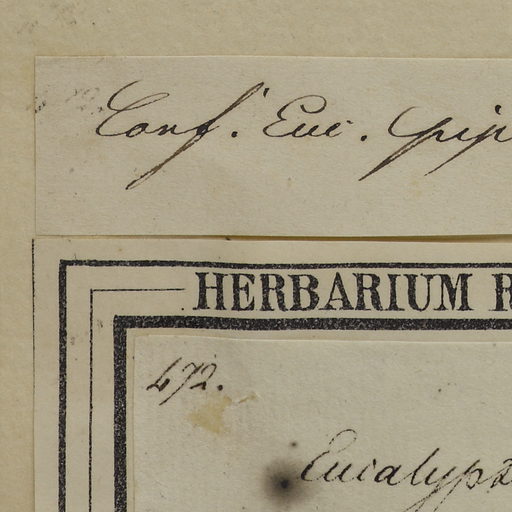 Conf. Euc. pip
HERBARIUM R
472.
Eucalypt